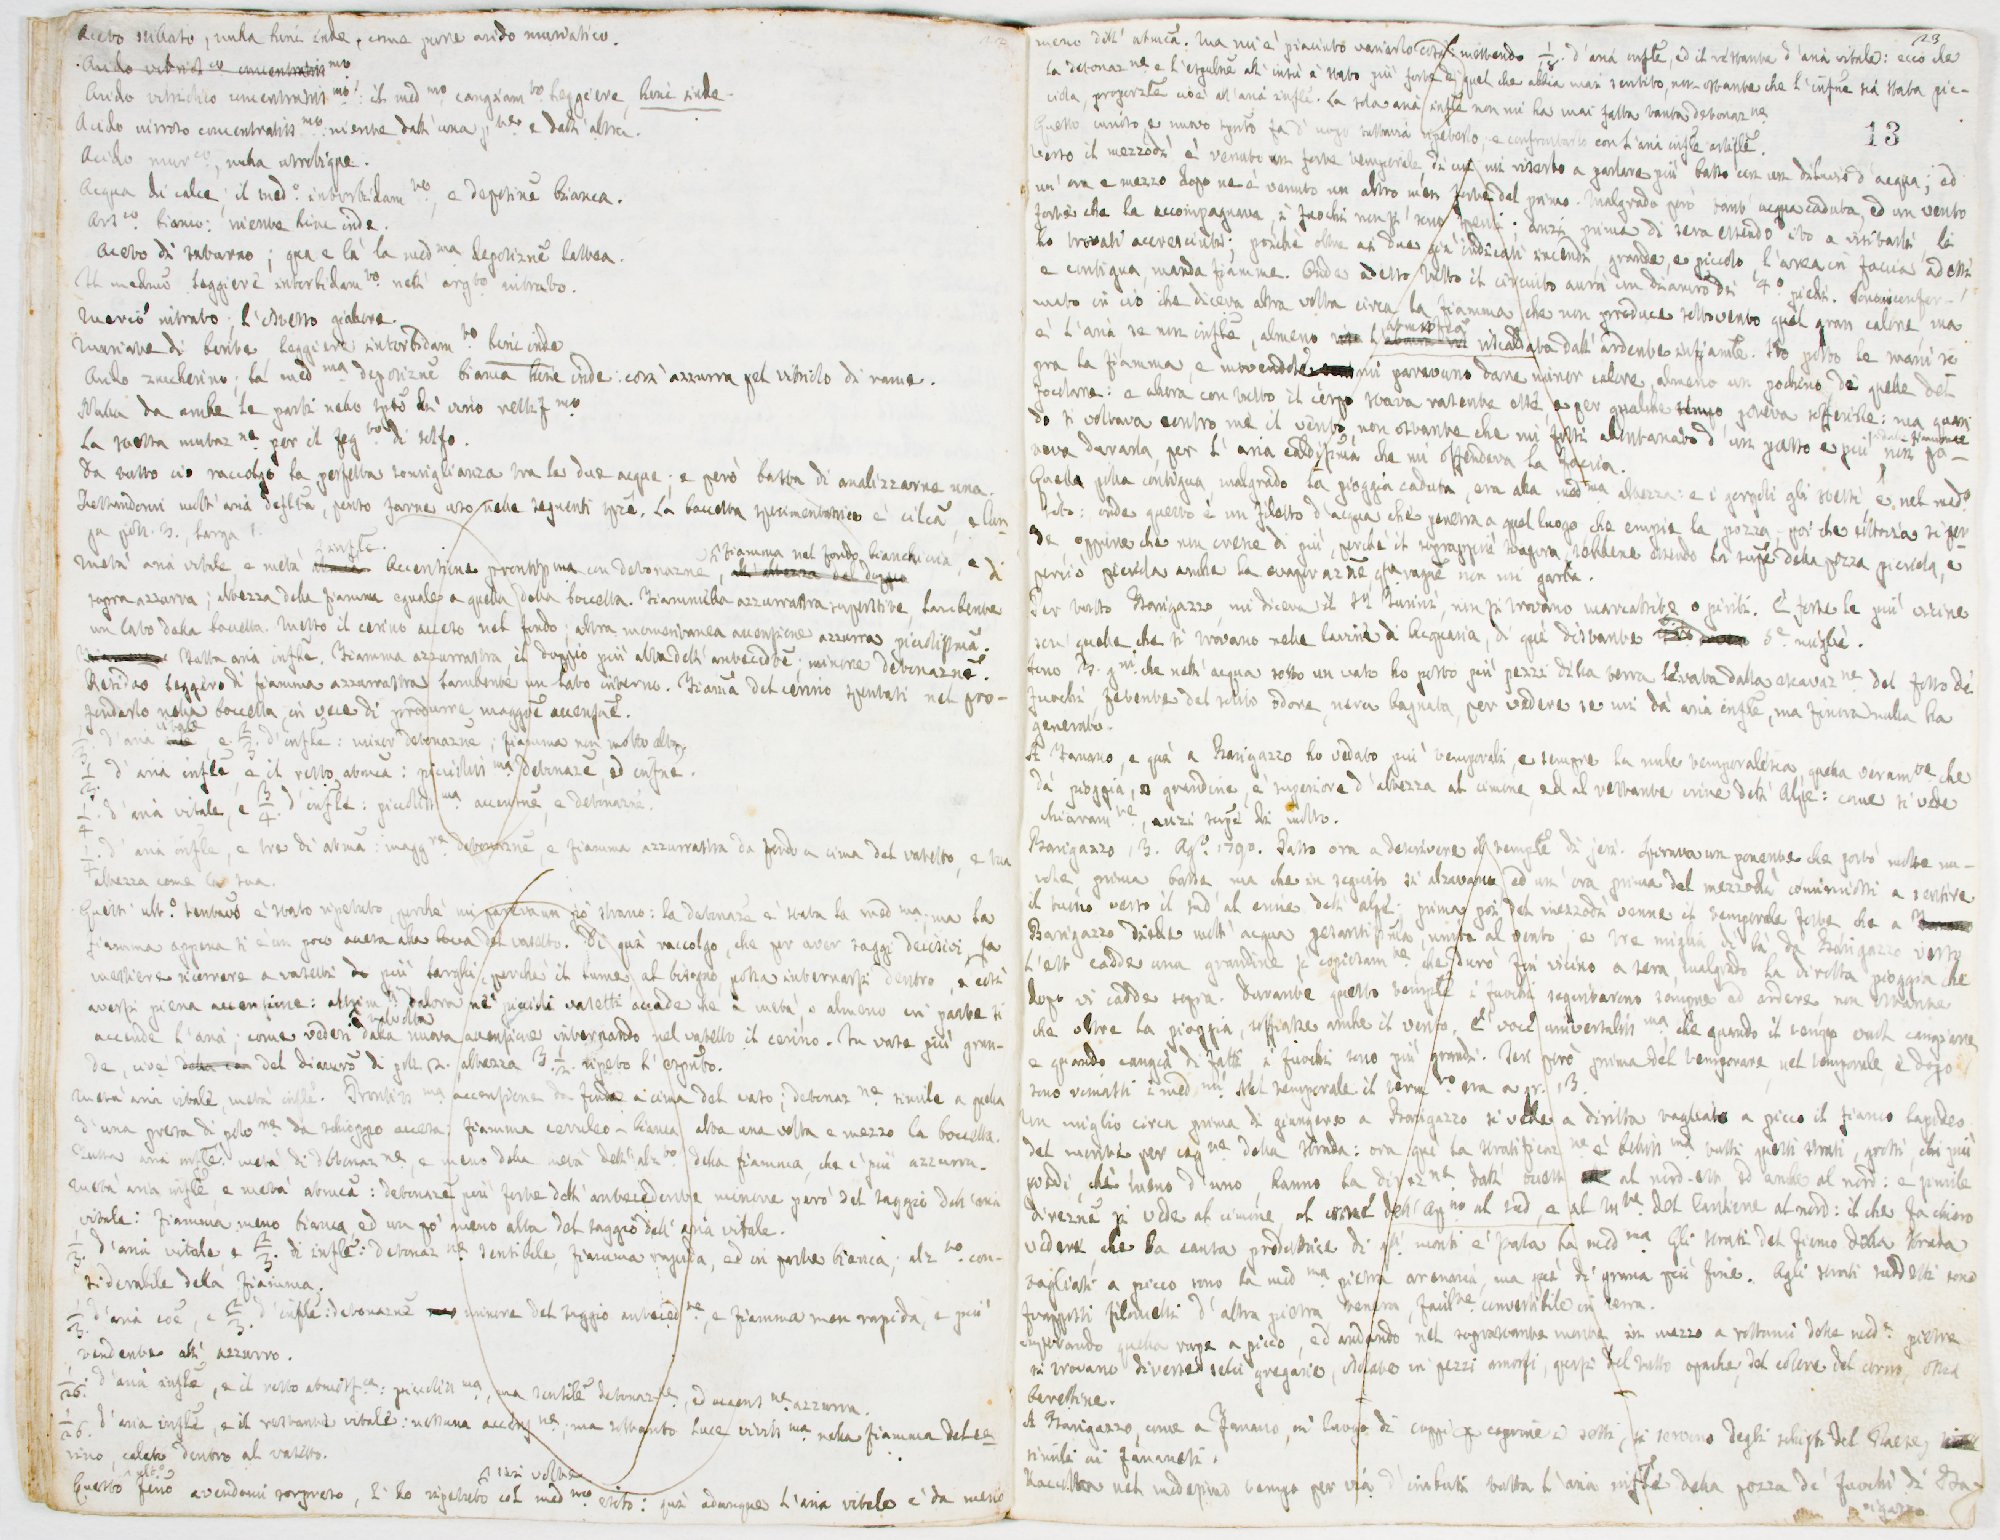 Aceto stillato, nulla hinc inde, come pure acido muriatico.
Acido vitriolico concentratiss.mo: il med.mo cangiam.to leggiere, hinc inde.
Acido nitroso concentratiss.mo: niente dall'una p.te e dall'altra.
Acido mur.co, nulla utrobique.
Acqua di calce; il med.o intorbidam.to, e deposizne bianca.
Ars.co bianco: niente hinc inde.
Aceto di saturno; qua e là la med.ma deposizne lattea.
Un leggiere intorbidam.to nell' arg.to nitrato.
Mercur nitrato; l'istesso giallore.
Muriate di barite, leggiere intorbidam.to hinc inde
Acido zuccherino; la med.ma deposizne bianca hinc inde: così azzurra pel vitriolo di rame.
Nulla da ambe le parti nello spto di vino rettif.mo
La stessa mutaz.ne per il feg.to di solfo.
Da tutto ciò raccolgo la perfetta somiglianza tra le due acque; e però basta di analizzarne una.
Restandomi molt'aria, penso farne uso nelle seguenti spze. La boccetta sperimentatrice è cilca, e lun-
ga poll. 3., larga 1.
Metà aria vitale e metà infle. Accensione prontissma con detonazne, fiamma nel fondo bianchiccia, e di
sopra azzurra; altezza della fiamma eguale a quella della boccetta. Fiammella azzurrastra superstite, lambente
un lato della boccetta. Metto il cerino acceso nel fondo; altra momentanea accensione azzurra piccolissma.
Tutta aria infle. Fiamma azzurrastra il doppio più alta dell'antecedte; minore detonazne.
Residuo leggero di fiamma azzurrastra lambente un lato interno. Fiama del cerino spentasi nel pro-
fondarlo nella boccetta, in vece di produrre maggre accensne.
1/3. d'aria vitale, e 2/3. d'infle: minor detonazne; fiamma non molto alta.
1/2. d'aria infle, e il resto atmca: piccoliss.ma detonazne, ed infne.
1/4. d'aria vitale, e 3/4. d'infle: piccoliss.ma accensne, e detonazne.
1/4. d'aria infle, e tre di atma: magg.re detonazne, e fiamma azzurrastra da fondo a cima del vasetto, e sua
altezza come la sua.
Quest'ult.o tentavo è stato ripetuto, perchè mi pareva un pò strano: la detonazne è stata la med.ma; ma la
fiamma appena si è un poco avesa alla bocca del vasetto. Di qui raccolgo, che per aver saggi decisivi, fa
mestiere ricorrere a vasetti più larghi, perchè il lume, al bisogno, possa internarsi dentro, e così
aversi piena accensione: altrim.ti talora ne' piccoli vasetti accade che a metà, o almeno in parte si
accende l'aria; come vedesi talvolta dalla nuova accensione internando nel vasetto il cerino. In vase più gran-
de, cioè del diamro di poll. 2. altezza 3 1/2. ripeto l'espmto.
Metà aria vitale, metà infle. Prontiss.ma accensione da fondo a cima del vaso; detonaz.ne simile a quella
d'una presa di polv.re da schioppo accesa; fiamma ceruleo-bianca alta una volta e mezzo la boccetta.
Tutta aria infle. metà di detonaz.ne, e meno della metà dell'alz.to della fiamma, che è più azzurra.
Metà aria infle, e metà atmca: detonazne più forte dell'antecedente minore però del saggio dell'aria
vitale: fiamma meno bianca, ed un pò meno alta del saggio dell'aria vitale.
1/3. d'aria vitale e 2/3. di infle: detonaz.ne sensibile, fiamma rapida, ed in parte bianca; alz.to con-
siderabile della fiamma.
1/3. d'aria coe, e 2/3. d'infle: detonazne minore del saggio anteced.te, e fiamma men rapida, e più
tendente all'azzurro.
1/26. d'aria infle, e il resto atmosf.ca: piccoliss.ma, ma sensile detonaz.ne, ed accens.ne azzurra.
1/26. d'aria infle, e il restante vitale: nessuna accens.ne; ma soltanto luce viviss.ma nella fiamma del ce-
rino, calato dentro al vasetto.
Questo ult.o feno avendomi sorpreso, l'ho ripetuto sei volte col med.mo esito: qui adunque l'aria vitale è da meno
23
meno dell'atmca. Ma mi è piaciuto variarlo così: mettendo 1/18. d'aria infle, ed il restante d'aria vitale: ecco che
la detonaz.ne e l'espulsne all'insù è stata più forte di quel che abbia mai sentito, non ostante che l'infne sia stata pic-
ciola, proporzle cioè all'aria infle. La sola aria infle non mi ha mai fatta tanta detonaz.ne
Questo curioso e nuovo spmto fa d'uopo tuttavia ripeterlo, e confrontarlo con l'aria infle artifle.
13
Verso il mezzodì è venuto un forte temporale, di cui mi riserbo a parlare più basso con un diluvio d'acqua; ed
un'ora e mezzo dopo ne è venuto un altro men forte del primo. Malgrado però tant'acqua caduta, ed un vento
forte che la accompagnava, i fuochi non si sono spenti: anzi prima di sera essendo ito a visitarli li
ho trovati accresciuti; poichè oltre ai due già indicati incendi grande, e piccolo l'area in faccia ad essi
e contigua, manda fiamme. Onde adesso tutto il circuito avrà un diamro di 4.o piedi. Sonmi confer-
mato in ciò che diceva altra volta circa la fiamma che non produce sottovento quel gran calore ma
è l'aria se non infle, almeno l'atmosfca riscaldata dall'ardente infiamle. Ho posto le mani so
pra la fiamma, e movendole mi parevano dare minor calore, almeno un pochino, di quelle del
focolare: e allora con tutto il corpo stava rasente essa e per qualche tempo poteva soffrirle: ma quan
do si voltava contro me il vento, non ostante che mi fossi alontanato d'un passo e più dalle fiamme non po-
teva durarla, per l'aria caldissima che mi offendeva la faccia.
Quella polla contigua, malgrado la pioggia caduta, era alla med.ma altezza: e i gorgolii gli stessi, e nel med.o
sito: onde questo è un filetto d'acqua che penetra a quel luogo che empie la pozza, poi che oltracciò si per-
de, oppure che non cresce di più, perchè il soprappiù svapora, sebbene essendo la supe della pozza piccola, e
perciò piccola anche la evaporazne qta ragne non mi garba.
Per tutto Barigazzo mi diceva il Sr Turini, non si trovano marcassite o piriti. E forse le più vicine
son quelle che si trovano nelle lavine di Acquaria, di quà distante 5.e miglia.
Sono 3. gni che nell'acqua sotto un vaso ho posto più pezzi della terra levata dalla escavaz.ne del fosso dei
fuochi, fetente del solito odore, nera bagnata, per vedere se mi dà aria infle, ma finora nulla ha
generato.
A Fanano, e quà a Barigazzo ho veduto più temporali, e sempre la nube temporalesca, quella veram.te che
dà pioggia, o grandine, è superiore d'altezza al cimone, ed al restante crine dell'Alpe: come si vede
chiaram.te, anzi supe di molto.
Barigazzo 13. Ag.o 1790. Passo ora a descrivere il temple di jeri. Spirava un ponente che portò molte nu-
vole, prima basse ma che in seguito si alzavano, ed un'ora prima del mezzodì cominciossi a sentire
il tuono verso il sud al crine dell'alpe; prima poi del mezzodì venne il temporale forte che a
Barigazzo diede molt'acqua pesantissma, unita al vento; e tre miglia di là da Barigazzo verso
l'est cadde una grandine sì copiosam.te che durò fin vicino a sera, malgrado la dirotta pioggia che
dopo vi cadde sopra. Durante questo temple i fuochi seguitarono sempre ad ardere non ostante
che oltre la pioggia, soffiasse anche il vento. E' voce universaliss.ma che quando il tempo vuol cangiare
e quando cangia di fatti, i fuochi sono più grandi. Jeri però prima del temporale, nel temporale, e dopo
sono rimasti i med.mi Nel temporale il term.ro era a gr. 13.
Un miglio circa prima di giungere a Barigazzo si vede a diritta tagliato a picco il fianco lapideo
del monte per cag.ne della strada: ora qui la stratificaz.ne è belliss.ma tutti questi strati, grossi, chi più
tutti, chè meno d'uno, hanno la direz.ne dall'ovest al nord-est, ed anche al nord: e simile
direzne si vede al cimone, al crine dell'Ap.no al sud, e al M.te del Cantiere al nord: il che fa chiaro
vedere, che la causa produttrice di qti monti è stata la med.ma Gli strati del fianco della strada
tagliati a picco sono la med.ma pietra arenaria, ma più di grana più fine. Agli strati suddetti sono
frapposti filoncelli d'altra pietra tenera, facilm.te convertibile in terra.
Superando quella rupe a picco, ed andando nel soprastante monte in mezzo a rottami delle med.e pietre
si trovano diverse selci gregarie, isolate in pezzi amorfi, quasi del tutto opache, del colore del corno, ossia
berettine.
A Barigazzo, come a Fanano, in luogo di coppi per coprire i tetti, si servono degli schisti del Paese,
simili ai Fananesi.
Raccolta nel medesimo tempo per via d'imbuti tutta l'aria infle della pozza de' fuochi di Ba-
rigazzo